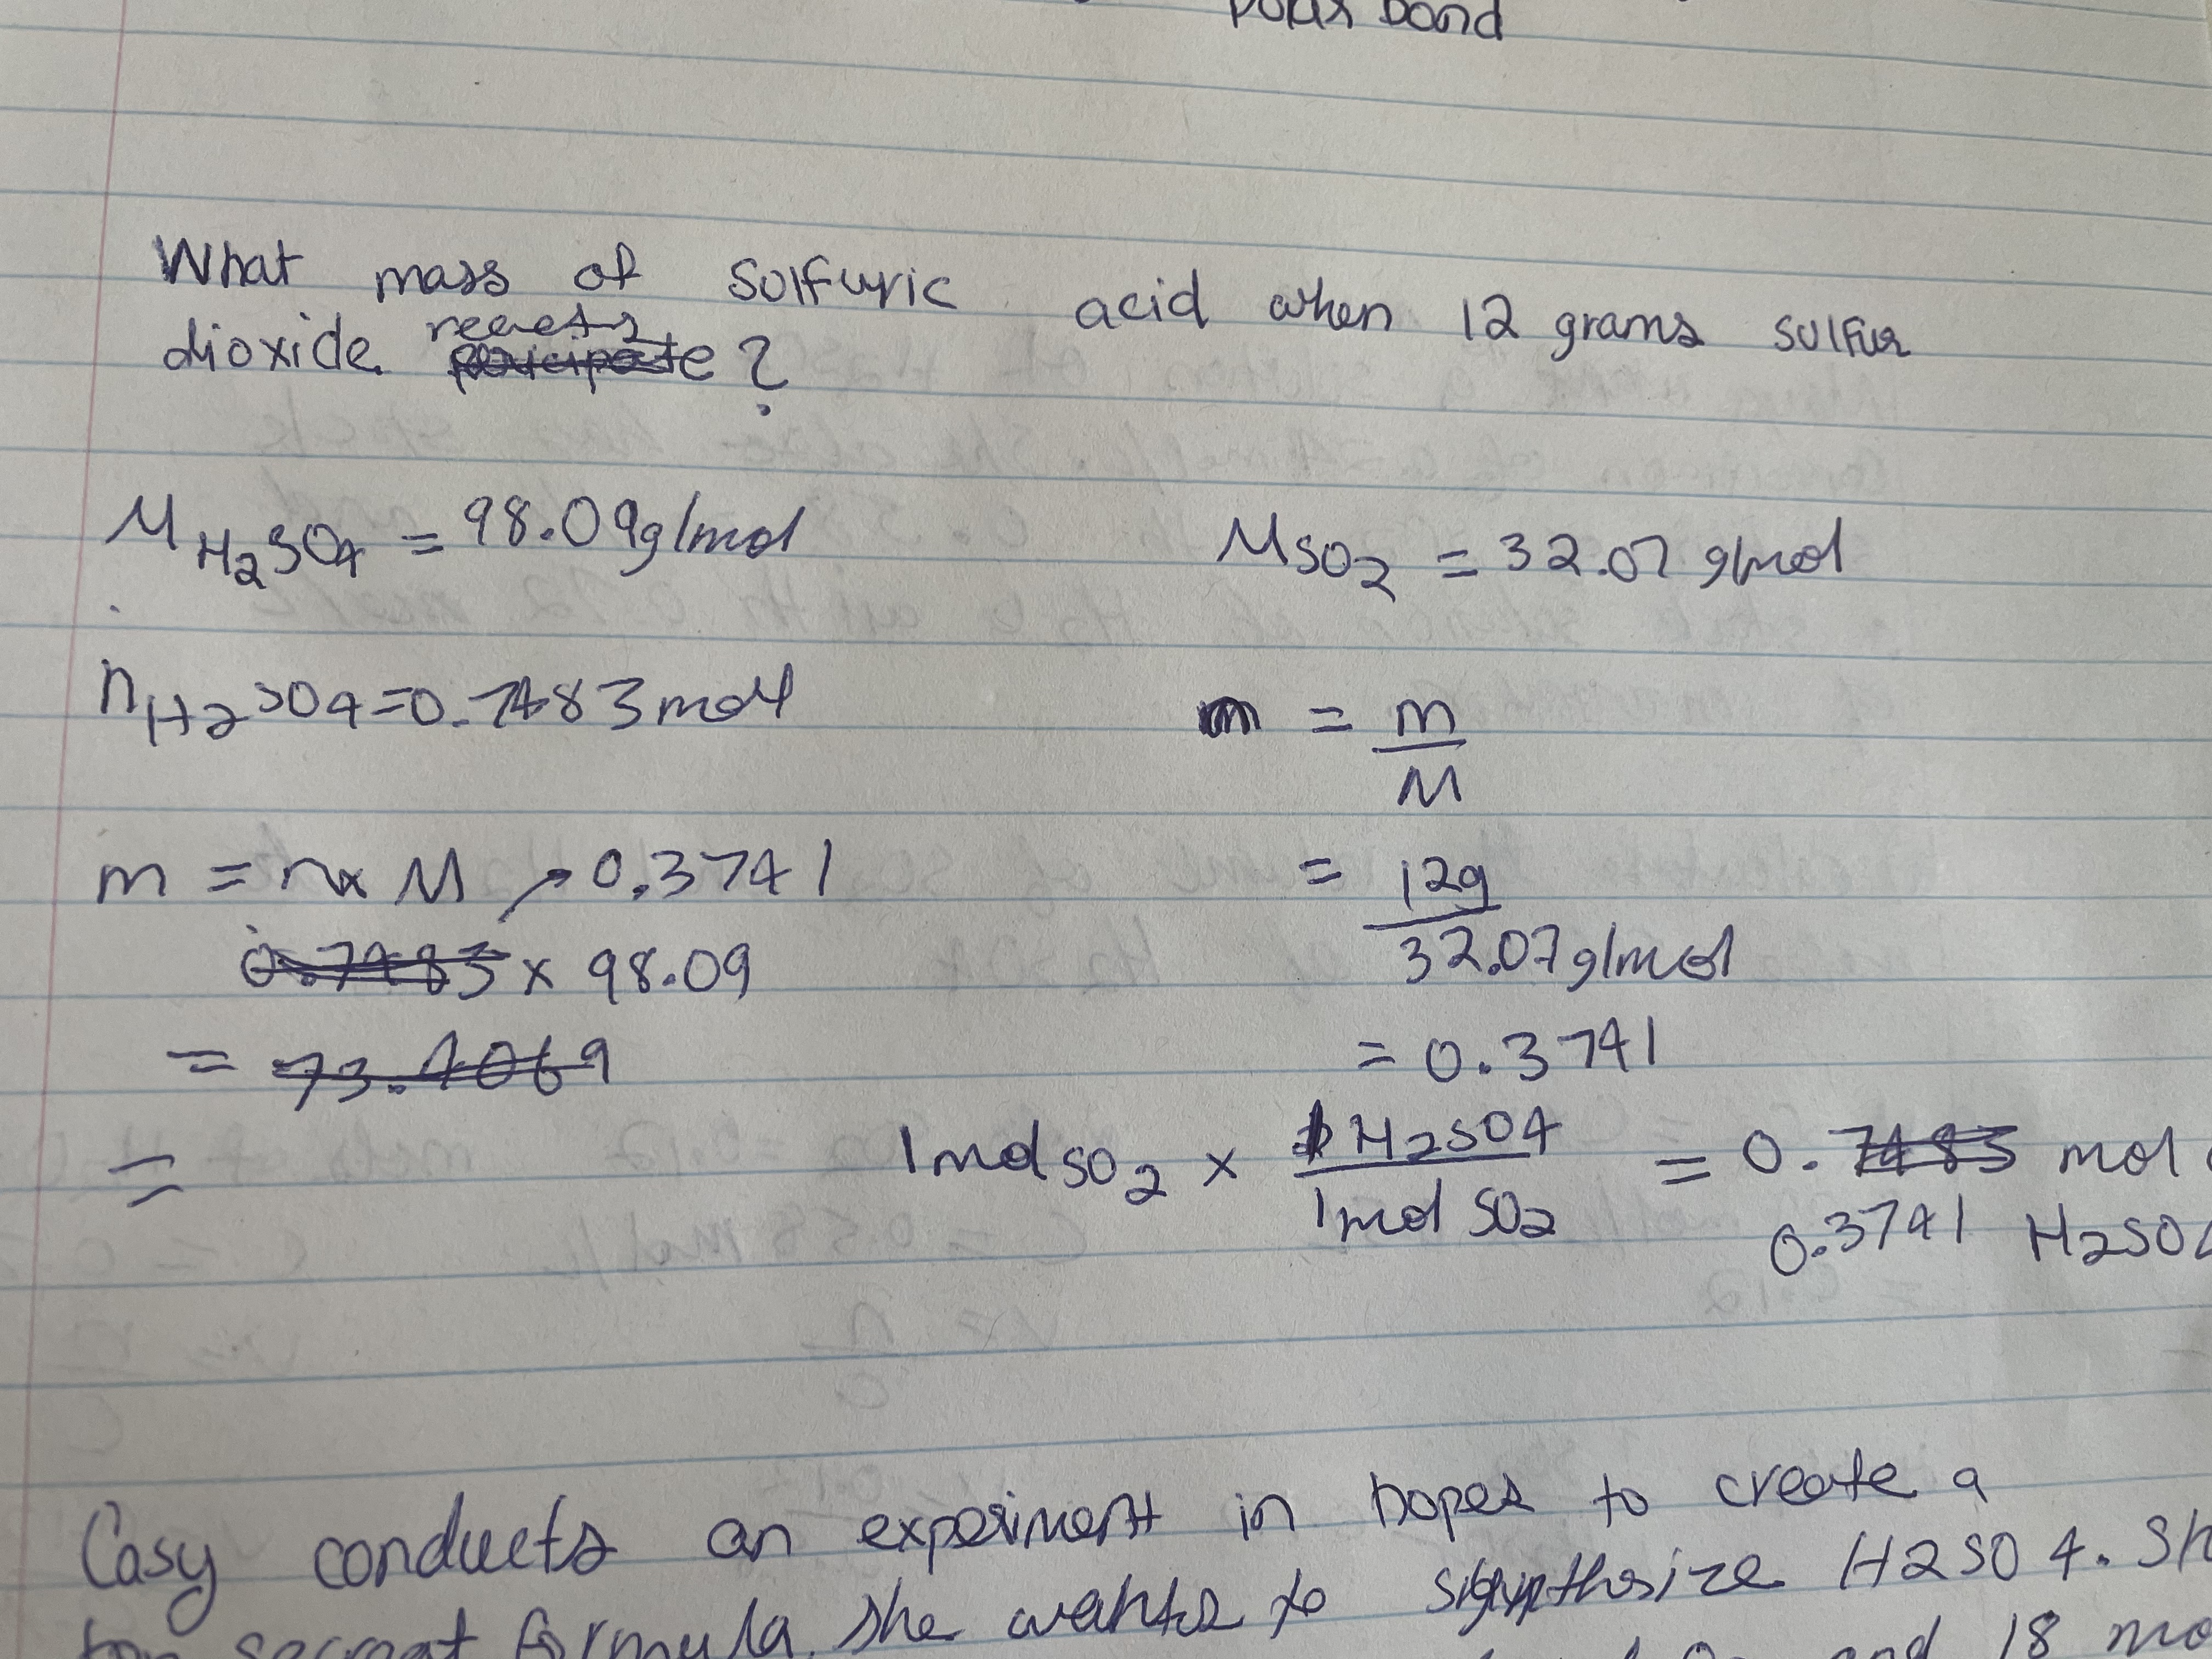 polar bond
What mass of sulfuric acid when 12 grams sulfur
dioxide reacts ?
M H2SO4 = 98.09g/mol
MSO2 = 32.07 g/mol
n H2SO4 = 0.7483 mol
= m
M
m = n x M → 0.3741
= 12g
32.07g/mol
0.7483 x 98.09
= 73.4069
= 0.3741
=
1mol SO2 x 1 H2SO4 = 0.7483 mol
1mol SO2
0.3741 H2SO4
Casy conducts an experiment in hopes to create a
secreat formula. She wants to synthesize H2SO4. Sh
and 18 mo